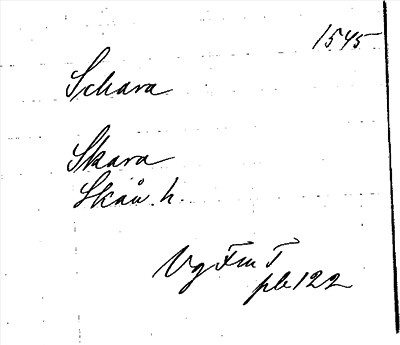 1545
Schara
Skara
Skån. h.
Vg Fm T
ple 122